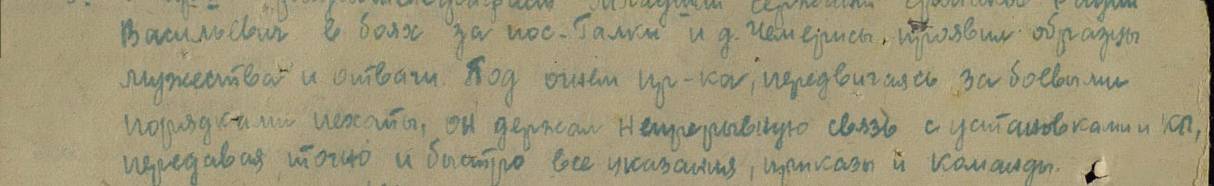 младший сержант
Васильевич в боях за пос. Галки и д. Чемерисы, проявил образцы
мужества и отваги. Под огнём пр-ка, передвигаясь за боевыми
порядками пехоты, он держал непрерывную связь с установками и КП,
передавая точно и быстро все указания, приказы и команды.